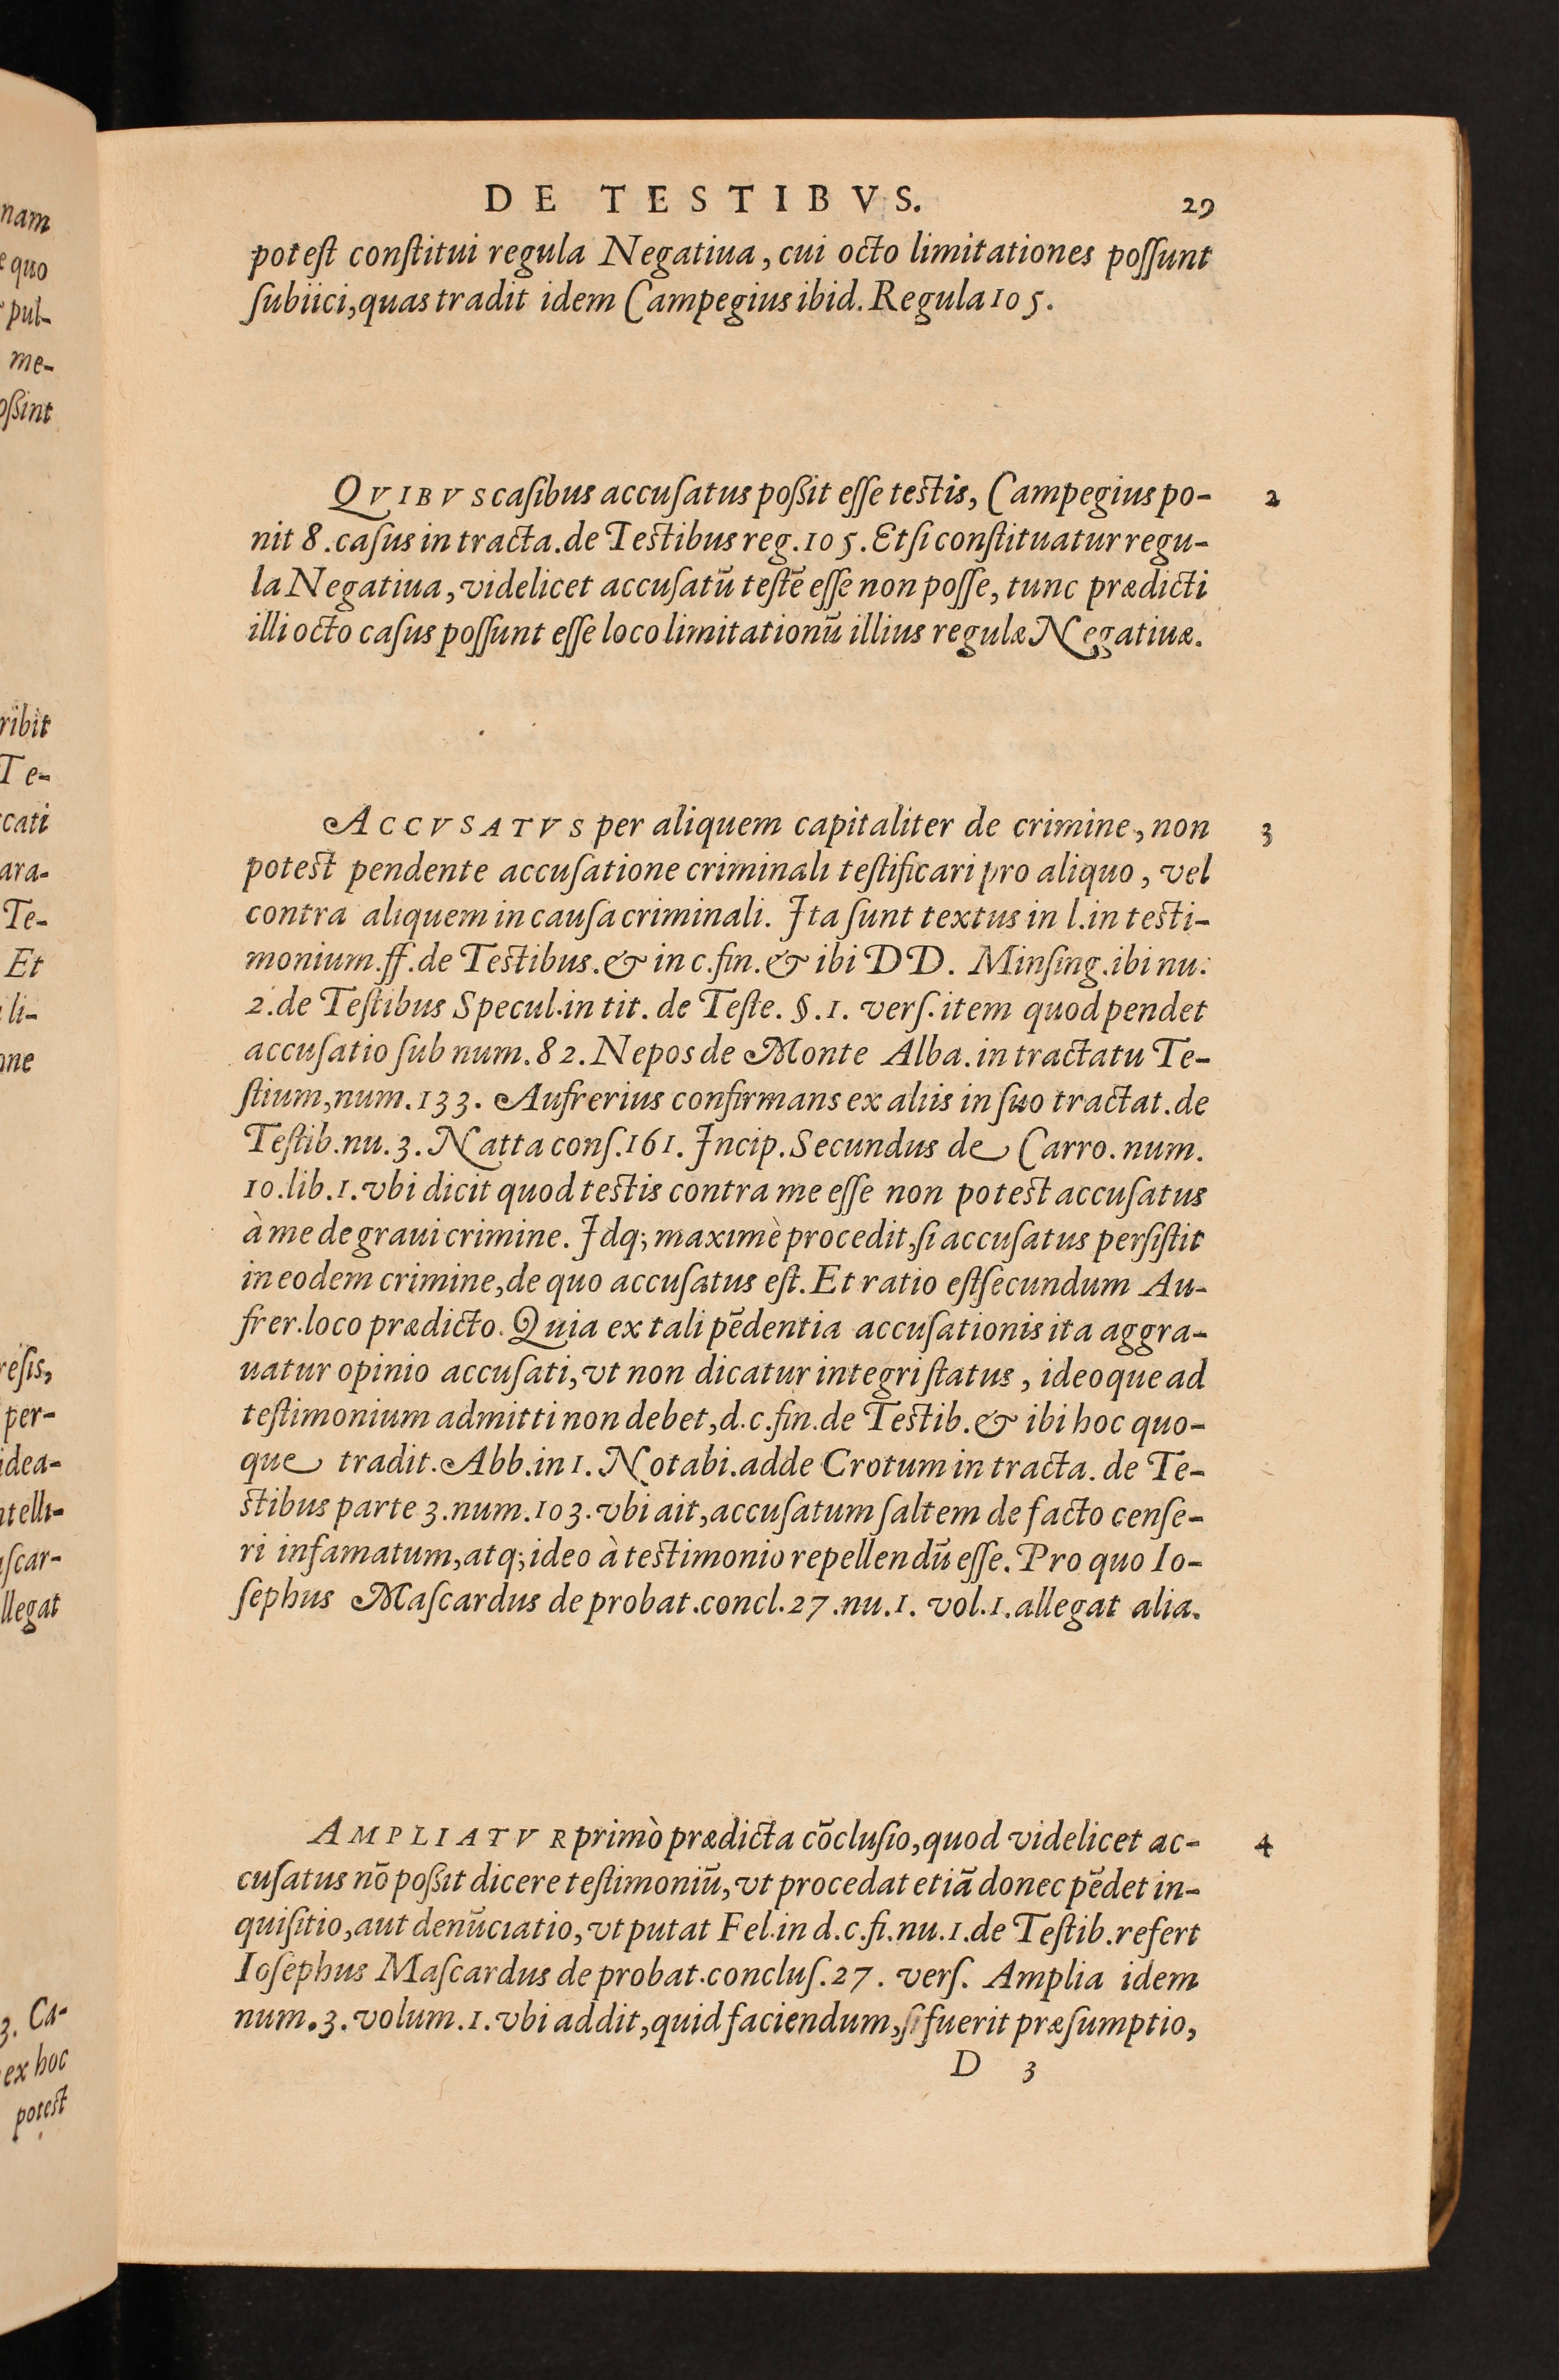 DE TESTIBVS. 29
potest constitui regula Negatiua, cui octo limitationes possunt
subiici, quas tradit idem Campegius ibid. Regula 105.
QVIBVS casibus accusatus poßit esse testis, Campegius po- 2
nit 8. casus in tracta. de Testibus reg. 105. Et si constituatur regu-
la Negatiua, videlicet accusatū testē esse non posse, tunc prædicti
illi octo casus possunt esse loco limitationū illius regulæ Negatiuæ.
ACCVSATVS per aliquem capitaliter de crimine, non 3
potest pendente accusatione criminali testificari pro aliquo, vel
contra aliquem in causa criminali. Ita sunt textus in l. in testi-
monium. ff. de Testibus. & in c. fin. & ibi DD. Minsing. ibi nu.
2. de Testibus Specul. in tit. de Teste. §. 1. vers. item quod pendet
accusatio sub num. 82. Nepos de Monte Alba. in tractatu Te-
stium, num. 133. Aufrerius confirmans ex aliis in suo tractat. de
Testib. nu. 3. Natta cons. 161. Incip. Secundus de Carro. num.
10. lib. 1. vbi dicit quod testis contra me esse non potest accusatus
à me de graui crimine. Idq; maximè procedit, si accusatus persistit
in eodem crimine, de quo accusatus est. Et ratio est secundum Au-
frer. loco prædicto. Quia ex tali pēdentia accusationis ita aggra-
uatur opinio accusati, vt non dicatur integri status, ideoque ad
testimonium admitti non debet, d. c. fin. de Testib. & ibi hoc quo-
que tradit. Abb. in 1. Notabi. adde Crotum in tracta. de Te-
stibus parte 3. num. 103. vbi ait, accusatum saltem de facto cense-
ri infamatum, atq; ideo à testimonio repellendū esse. Pro quo Io-
sephus Mascardus de probat. concl. 27. nu. 1. vol. 1. allegat alia.
AMPLIATVR primò prædicta cōclusio, quod videlicet ac- 4
cusatus nō poßit dicere testimoniū, vt procedat etiā donec pēdet in-
quisitio, aut denūciatio, vt putat Fel. in d. c. fi. nu. 1. de Testib. refert
Iosephus Mascardus de probat. conclus. 27. vers. Amplia idem
num. 3. volum. 1. vbi addit, quid faciendum, si fuerit præsumptio,
D 3
nam
quo
pul-
me-
oßint
ribit
Te-
cati
ara-
Te-
Et
li-
resis,
per-
idea-
ntelli-
scar-
llegat
3. Ca-
ex hoc
potest